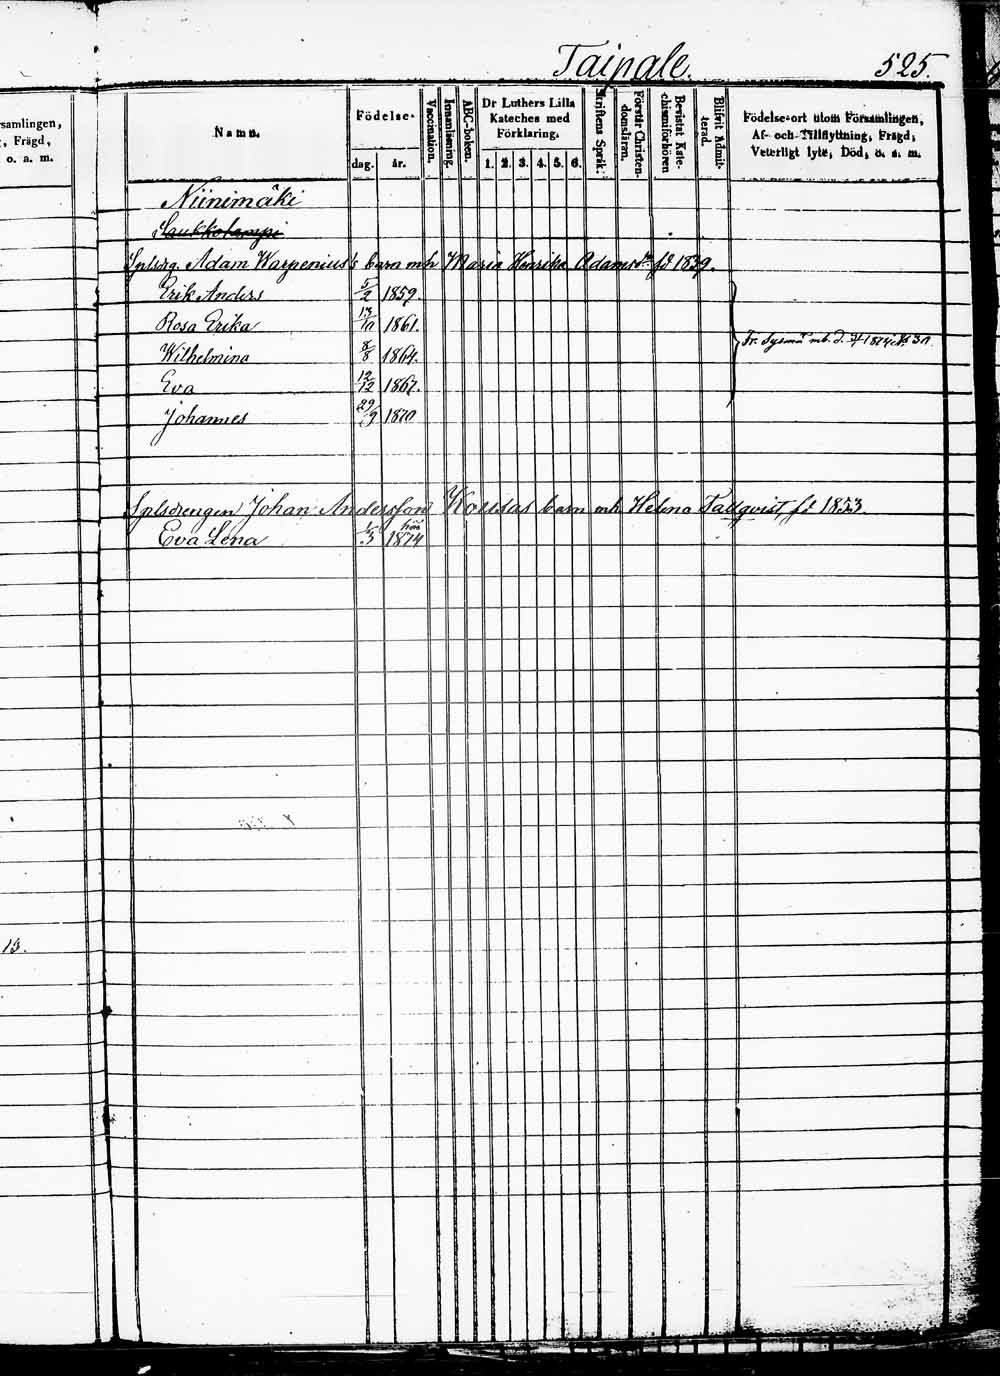 Taipale. 525.
rsamlingen,
, Frägd,
o. a. m.
Namn.
Födelse-
dag. år.
Vaccination.
Innanläsning.
ABC-boken.
Dr Luthers Lilla
Kateches med
Förklaring.
1. 2. 3. 4. 5. 6.
Skriftens Språk.
Förstår Christen-
domsläran.
Bevistat Kate-
chismiförhören
Blifvit Admit-
terad.
Födelse-ort utom Församlingen,
Af- och Tillflyttning, Frägd,
Veterligt lyte, Död, o. s. m.
Niinimäki
Saukkolampi
Splsdrg. Adam Warpenius's barn mh Maria Henrika Adamsdr fd 1839.
Erik Anders 5/2 1859.
Rosa Erika 13/11 1861.
Wilhelmina 8/8 1864.
Fr. Sysmä mb. d. 1874 No 30.
Eva 12/12 1867.
Johannes 29/9 1870
Splsdrengen Johan Andersson Kouhas barn mh Helena Tallqvist fd 1853.
Eva Lena 1/3 här 1874
13.